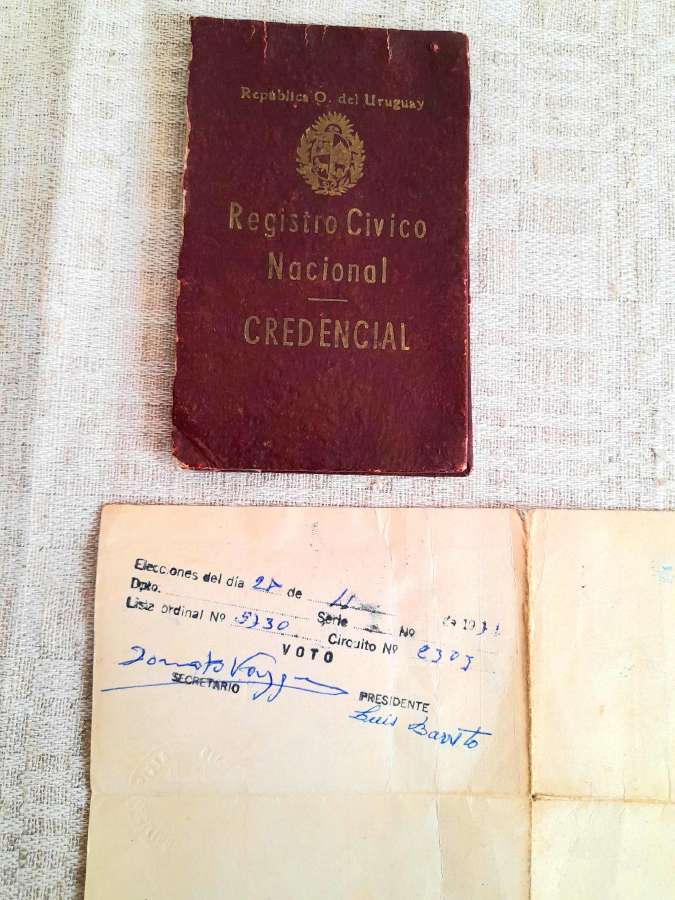 República O. del Uruguay
Registro Civico
Nacional
CREDENCIAL
Elecciones del día 28 de 11 de 1971
Dpto. Serie Nº
Lista ordinal Nº Circuito Nº 2303
VOTO
SECRETARIO PRESIDENTE
Luis